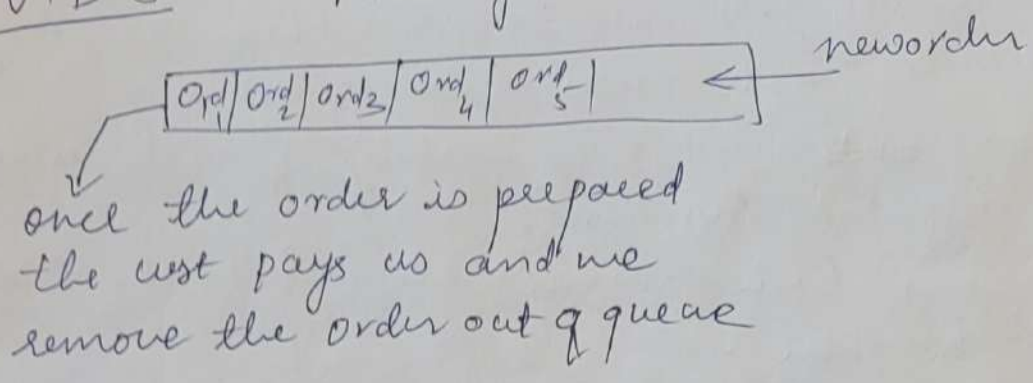 neworder
Ord 1 Ord 2 Ord 3 Ord 4 Ord 5
once the order is prepared
the cust pays us and we
remove the order out of queue